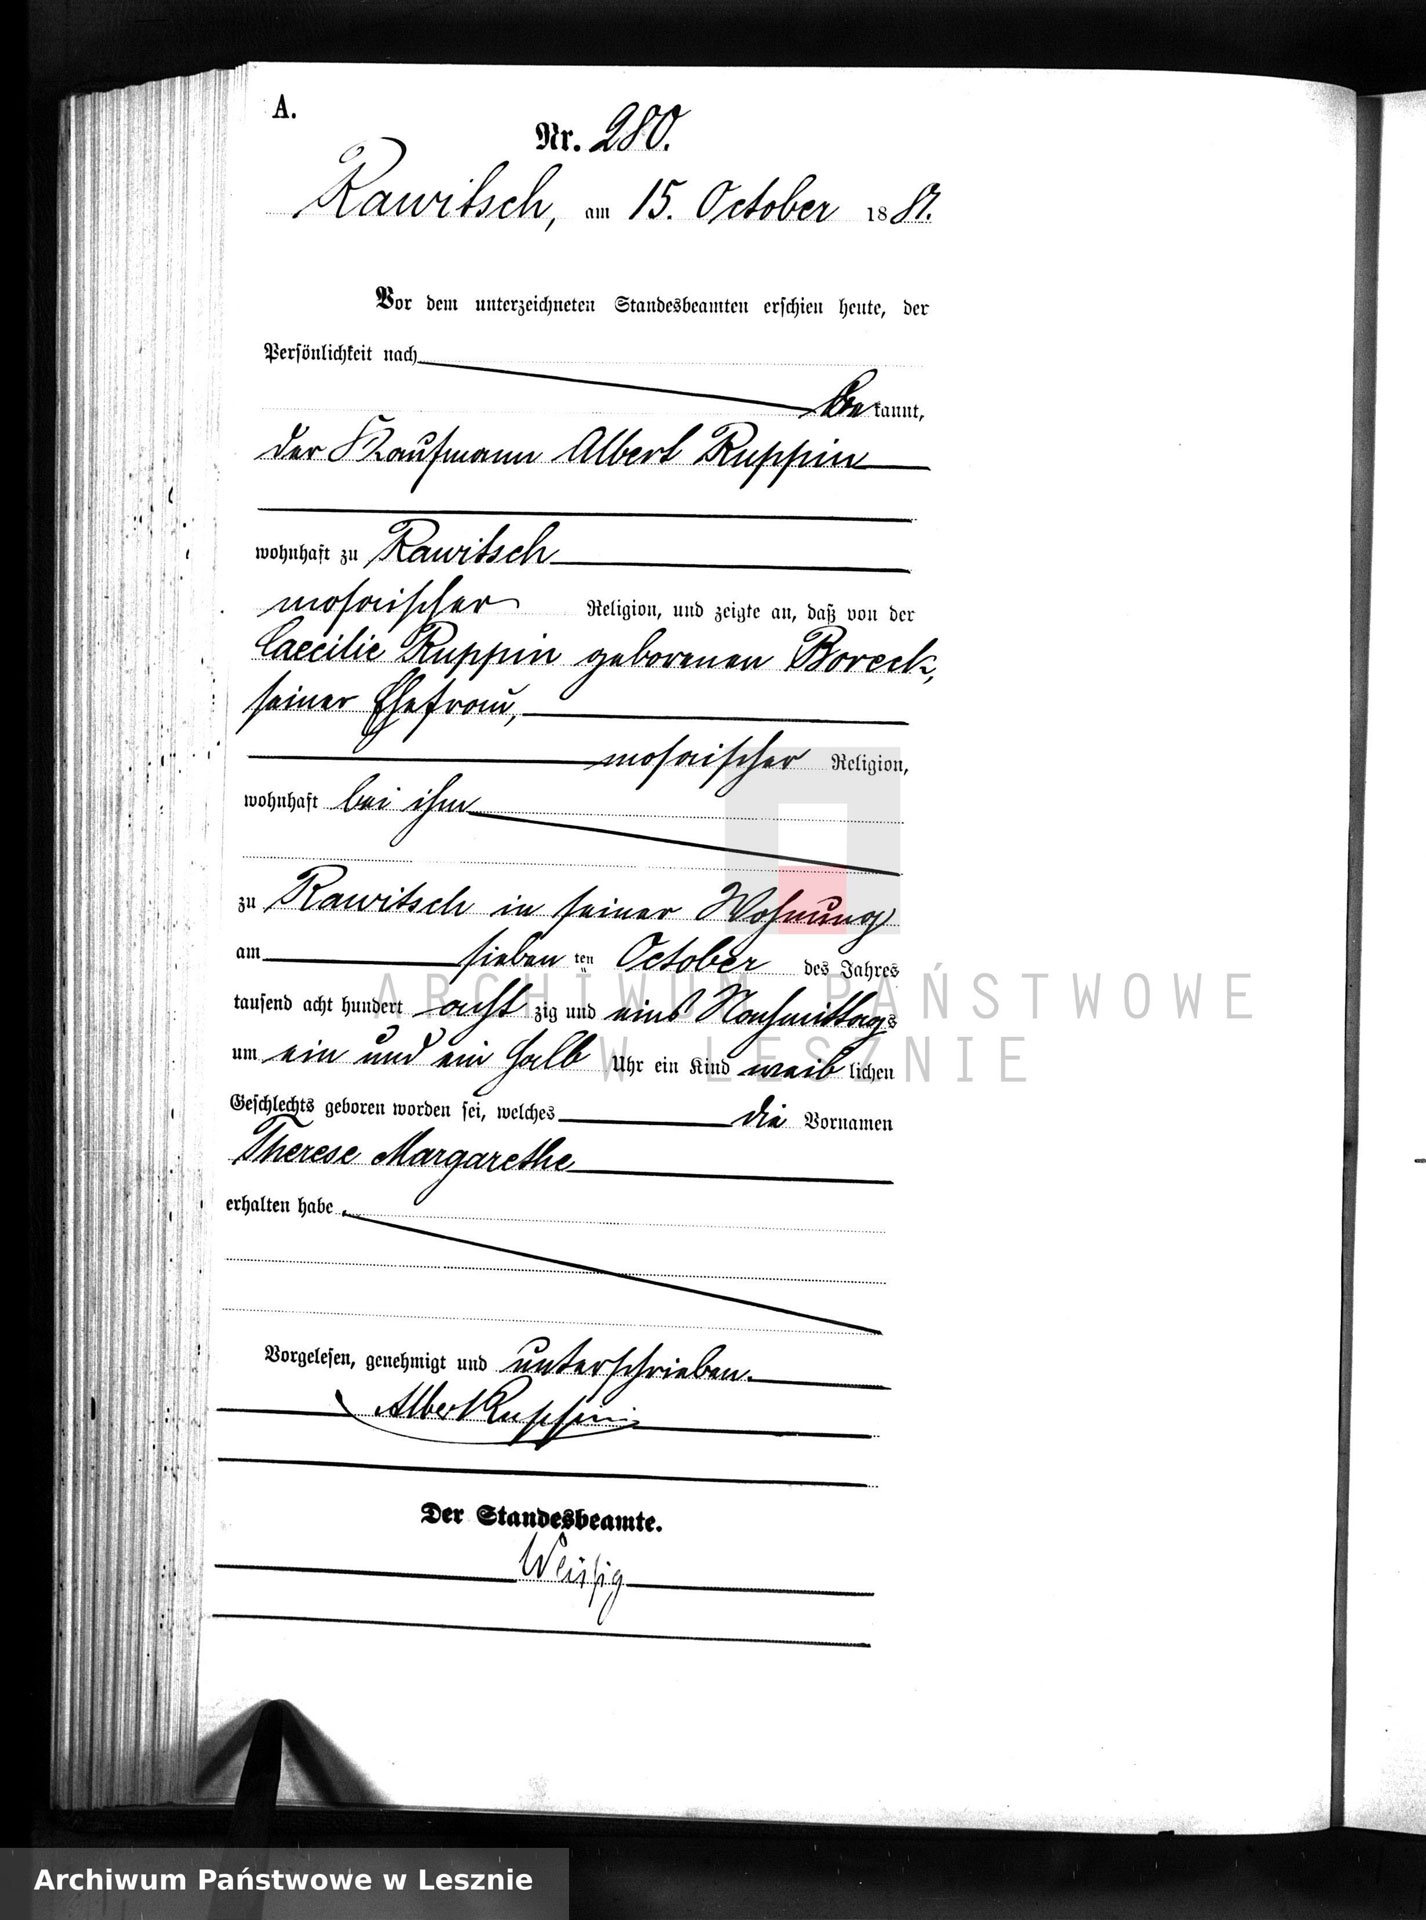 A.
Nr. 280.
Rawitsch, am 15. October 1881.
Vor dem unterzeichneten Standesbeamten erschien heute, der
Persönlichkeit nach
be kannt,
der Kaufmann Albert Ruppin
wohnhaft zu Rawitsch
mosaischer Religion, und zeigte an, daß von der
Caecilie Ruppin geborenen Boreck,
seiner Ehefrau,
mosaischer Religion,
wohnhaft bei ihm
zu Rawitsch in seiner Wohnung
am sieben ten October des Jahres
tausend acht hundert acht zig und eins Nachmittags
um ein und ein halb Uhr ein Kind weib lichen
Geschlechts geboren worden sei, welches die Vornamen
Therese Margarethe
erhalten habe.
Vorgelesen, genehmigt und unterschrieben.
Albert Ruppin
Der Standesbeamte.
Weissig
ARCHIWUM PAŃSTWOWE
W LESZNIE
Archiwum Państwowe w Lesznie